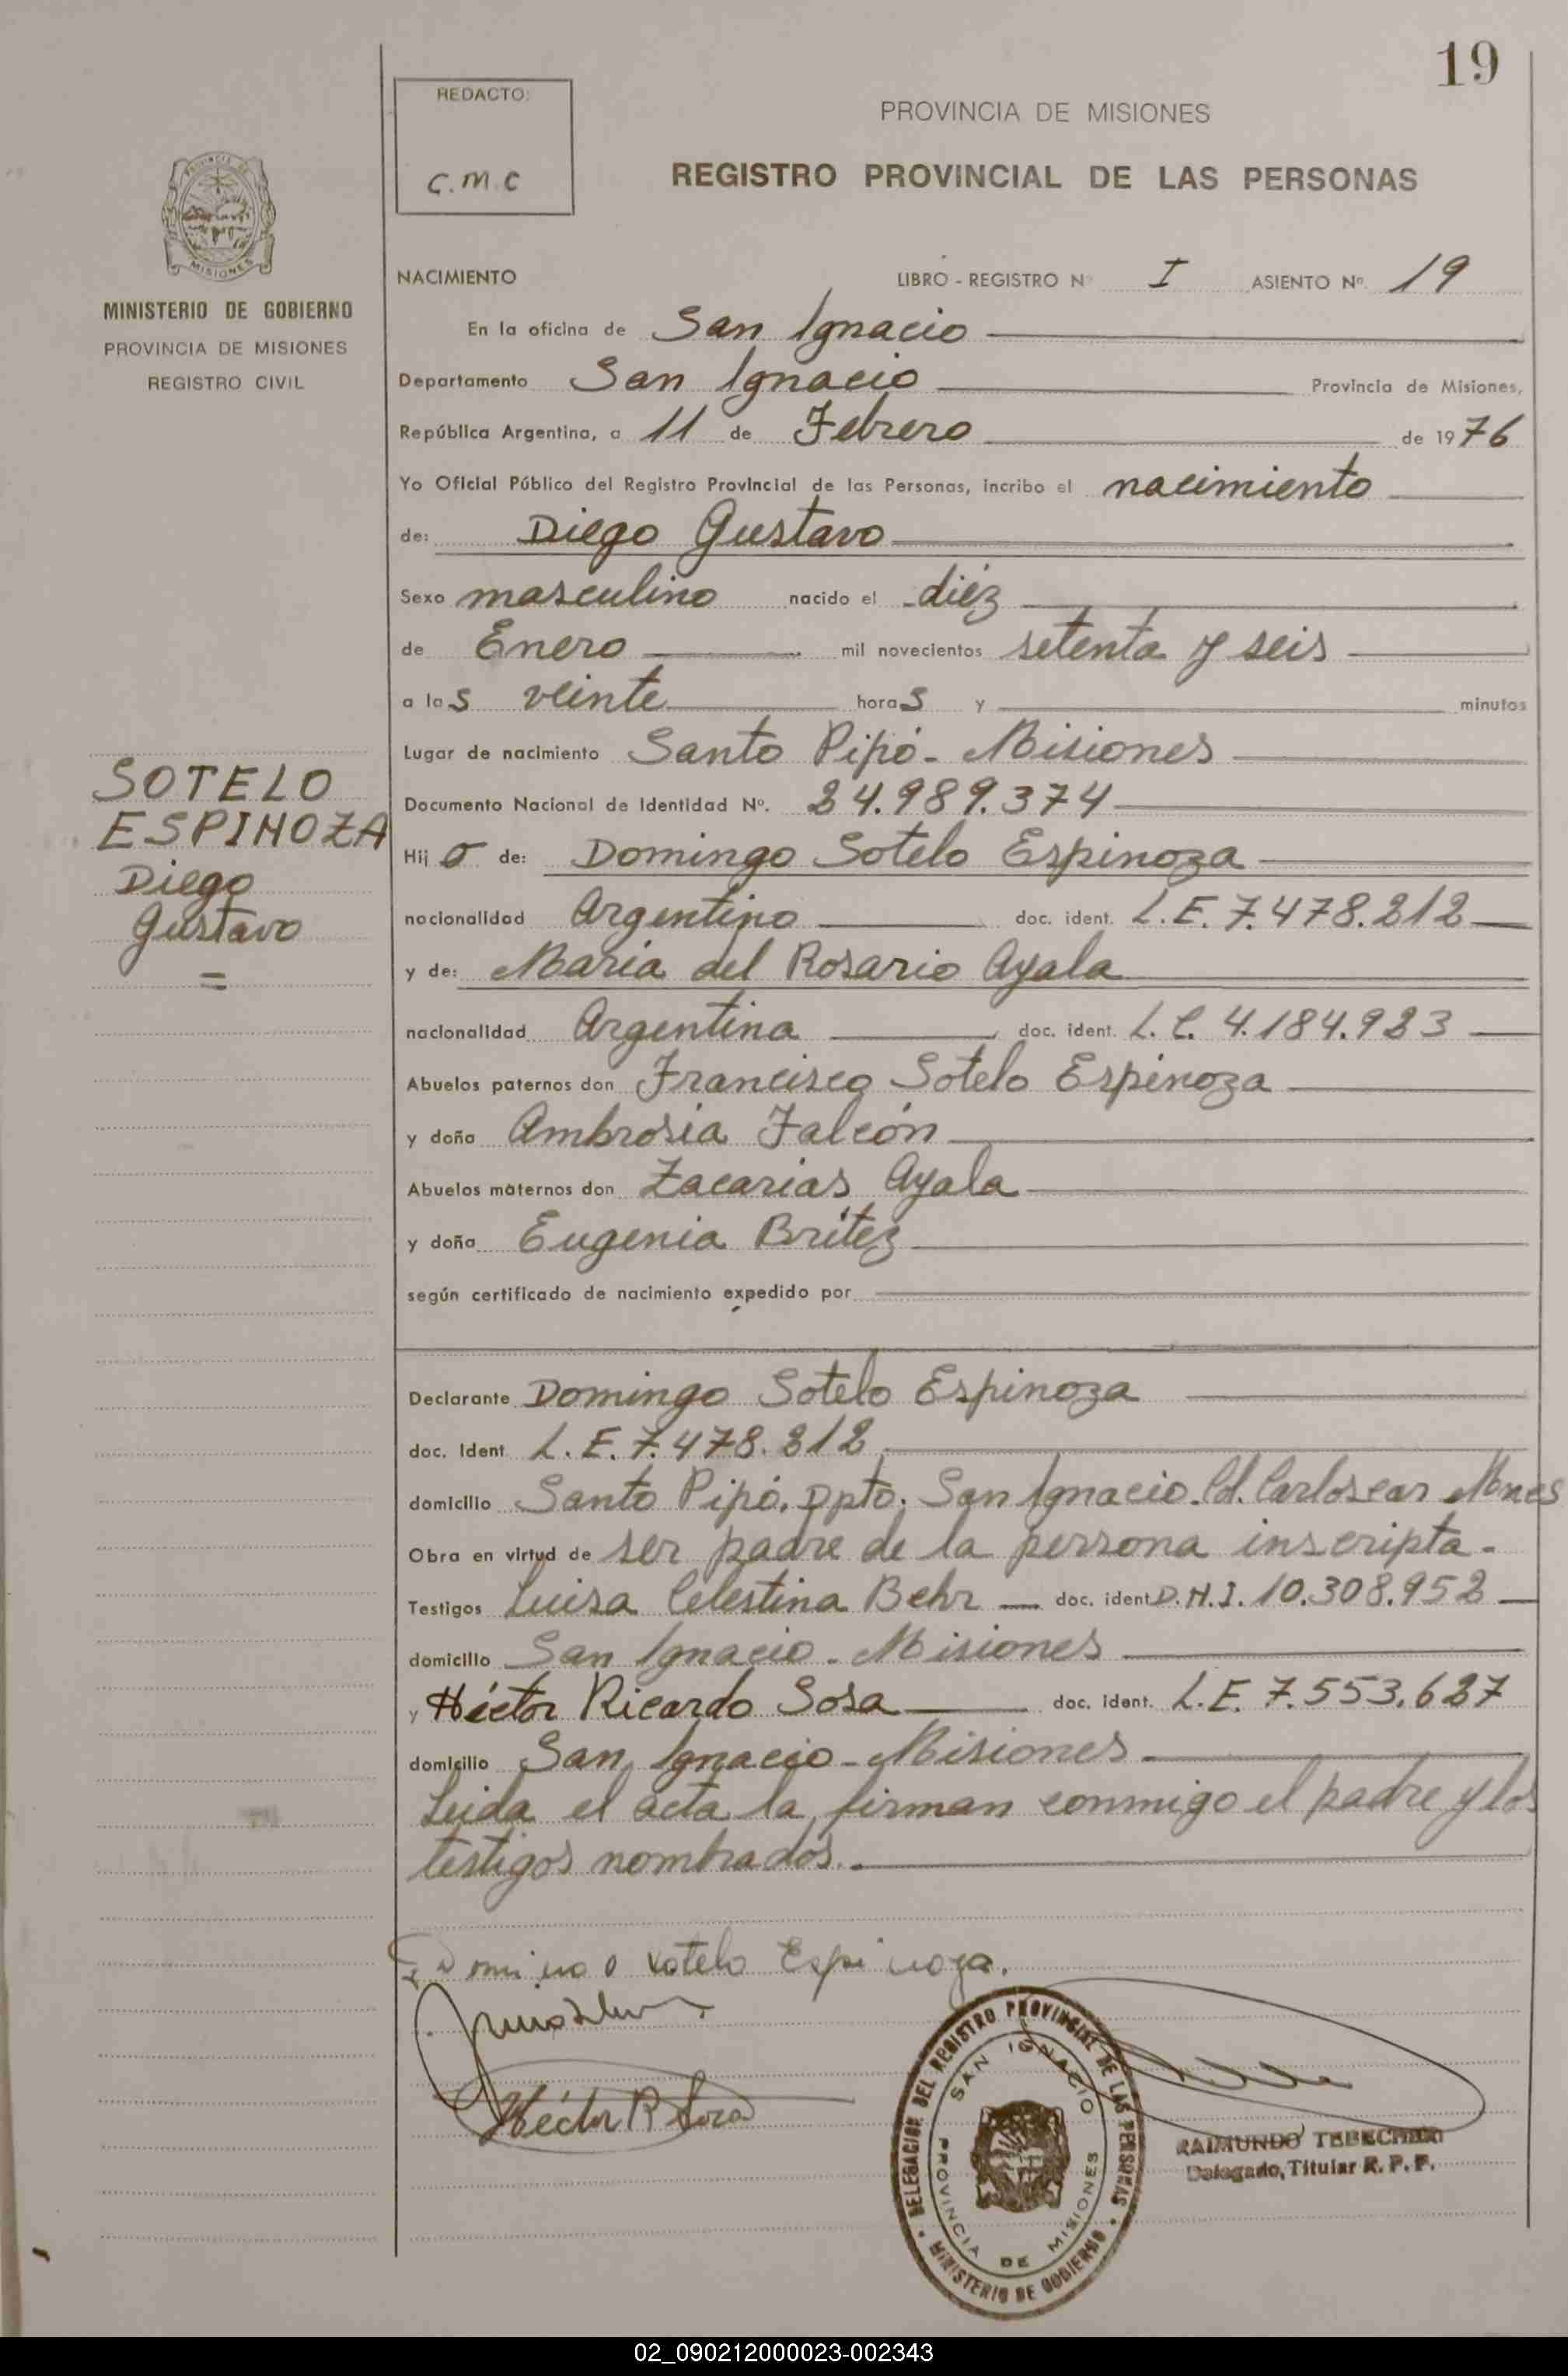 19
REDACTO:
C.M.C
PROVINCIA DE MISIONES
REGISTRO PROVINCIAL DE LAS PERSONAS
PROVINCIA DE
MISIONES
MINISTERIO DE GOBIERNO
PROVINCIA DE MISIONES
REGISTRO CIVIL
NACIMIENTO LIBRO - REGISTRO Nº I ASIENTO Nº. 19
En la oficina de San Ignacio
Departamento San Ignacio Provincia de Misiones,
República Argentina, a 11 de Febrero de 1976
Yo Oficial Público del Registro Provincial de las Personas, incribo el nacimiento
de: Diego Gustavo
Sexo masculino nacido el diéz
de Enero mil novecientos setenta y seis
a las veinte horas y minutos
Lugar de nacimiento Santo Pipó - Misiones
SOTELO
ESPINOZA
Diego
Gustavo
=
Documento Nacional de Identidad Nº. 24.989.374
Hijo de: Domingo Sotelo Espinoza
nacionalidad Argentino doc. ident. L.E. 7.478.212
y de: Maria del Rosario Ayala
nacionalidad Argentina doc. ident. L.C. 4.184.923
Abuelos paternos don Francisco Sotelo Espinoza
y doña Ambrosia Falcón
Abuelos maternos don Zacarias Ayala
y doña Eugenia Britez
según certificado de nacimiento expedido por
Declarante Domingo Sotelo Espinoza
doc. Ident. L.E. 7.478.212
domicilio Santo Pipó, Dpto. San Ignacio. Mnes
Obra en virtud de ser padre de la persona inscripta.
Testigos Luisa Celestina Behr doc. ident. D.N.I. 10.308.952
domicilio San Ignacio - Misiones
y Héctor Ricardo Sosa doc. ident. L.E. 7.553.627
domicilio San Ignacio - Misiones
Leida el acta la firman conmigo el padre y los
testigos nombrados.
Domingo Sotelo Espinoza.
Héctor R. Sosa
DELEGACION DEL REGISTRO PROVINCIAL DE LAS PERSONAS
SAN IGNACIO
PROVINCIA DE MISIONES
MINISTERIO DE GOBIERNO
RAIMUNDO
Delegado, Titular R. P. P.
02_090212000023-002343